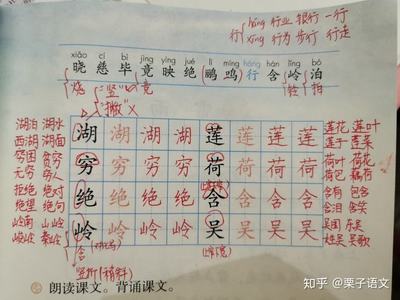 行 háng 行业 银行 一行
xíng 行为 步行 行走
xiǎo cí bì jìng yìng jué lí míng háng hán lǐng bó
晓 慈 毕 竟 映 绝 鹂 鸣 行 含 岭 泊
烧 "竖" 竟 铃 拍
"撇" X
湖泊 湖水 湖 湖 湖 湖 莲 莲 莲 莲 莲花 莲叶
西湖 湖面 莲子 莲菜
穷困 贫穷 穷 穷 穷 穷 荷 荷 荷 荷 荷叶 荷花
无穷 穷人 荷包
拒绝 绝对 绝 绝 绝 绝 含 含 含 含 含有 包含
绝望 绝句 含泪 含笑
岭南 山岭 岭 岭 岭 岭 吴 吴 吴 吴 吴国 东吴
秦岭 姓吴 吴歌
含
朗读课文。背诵课文。
知乎 @栗子语文